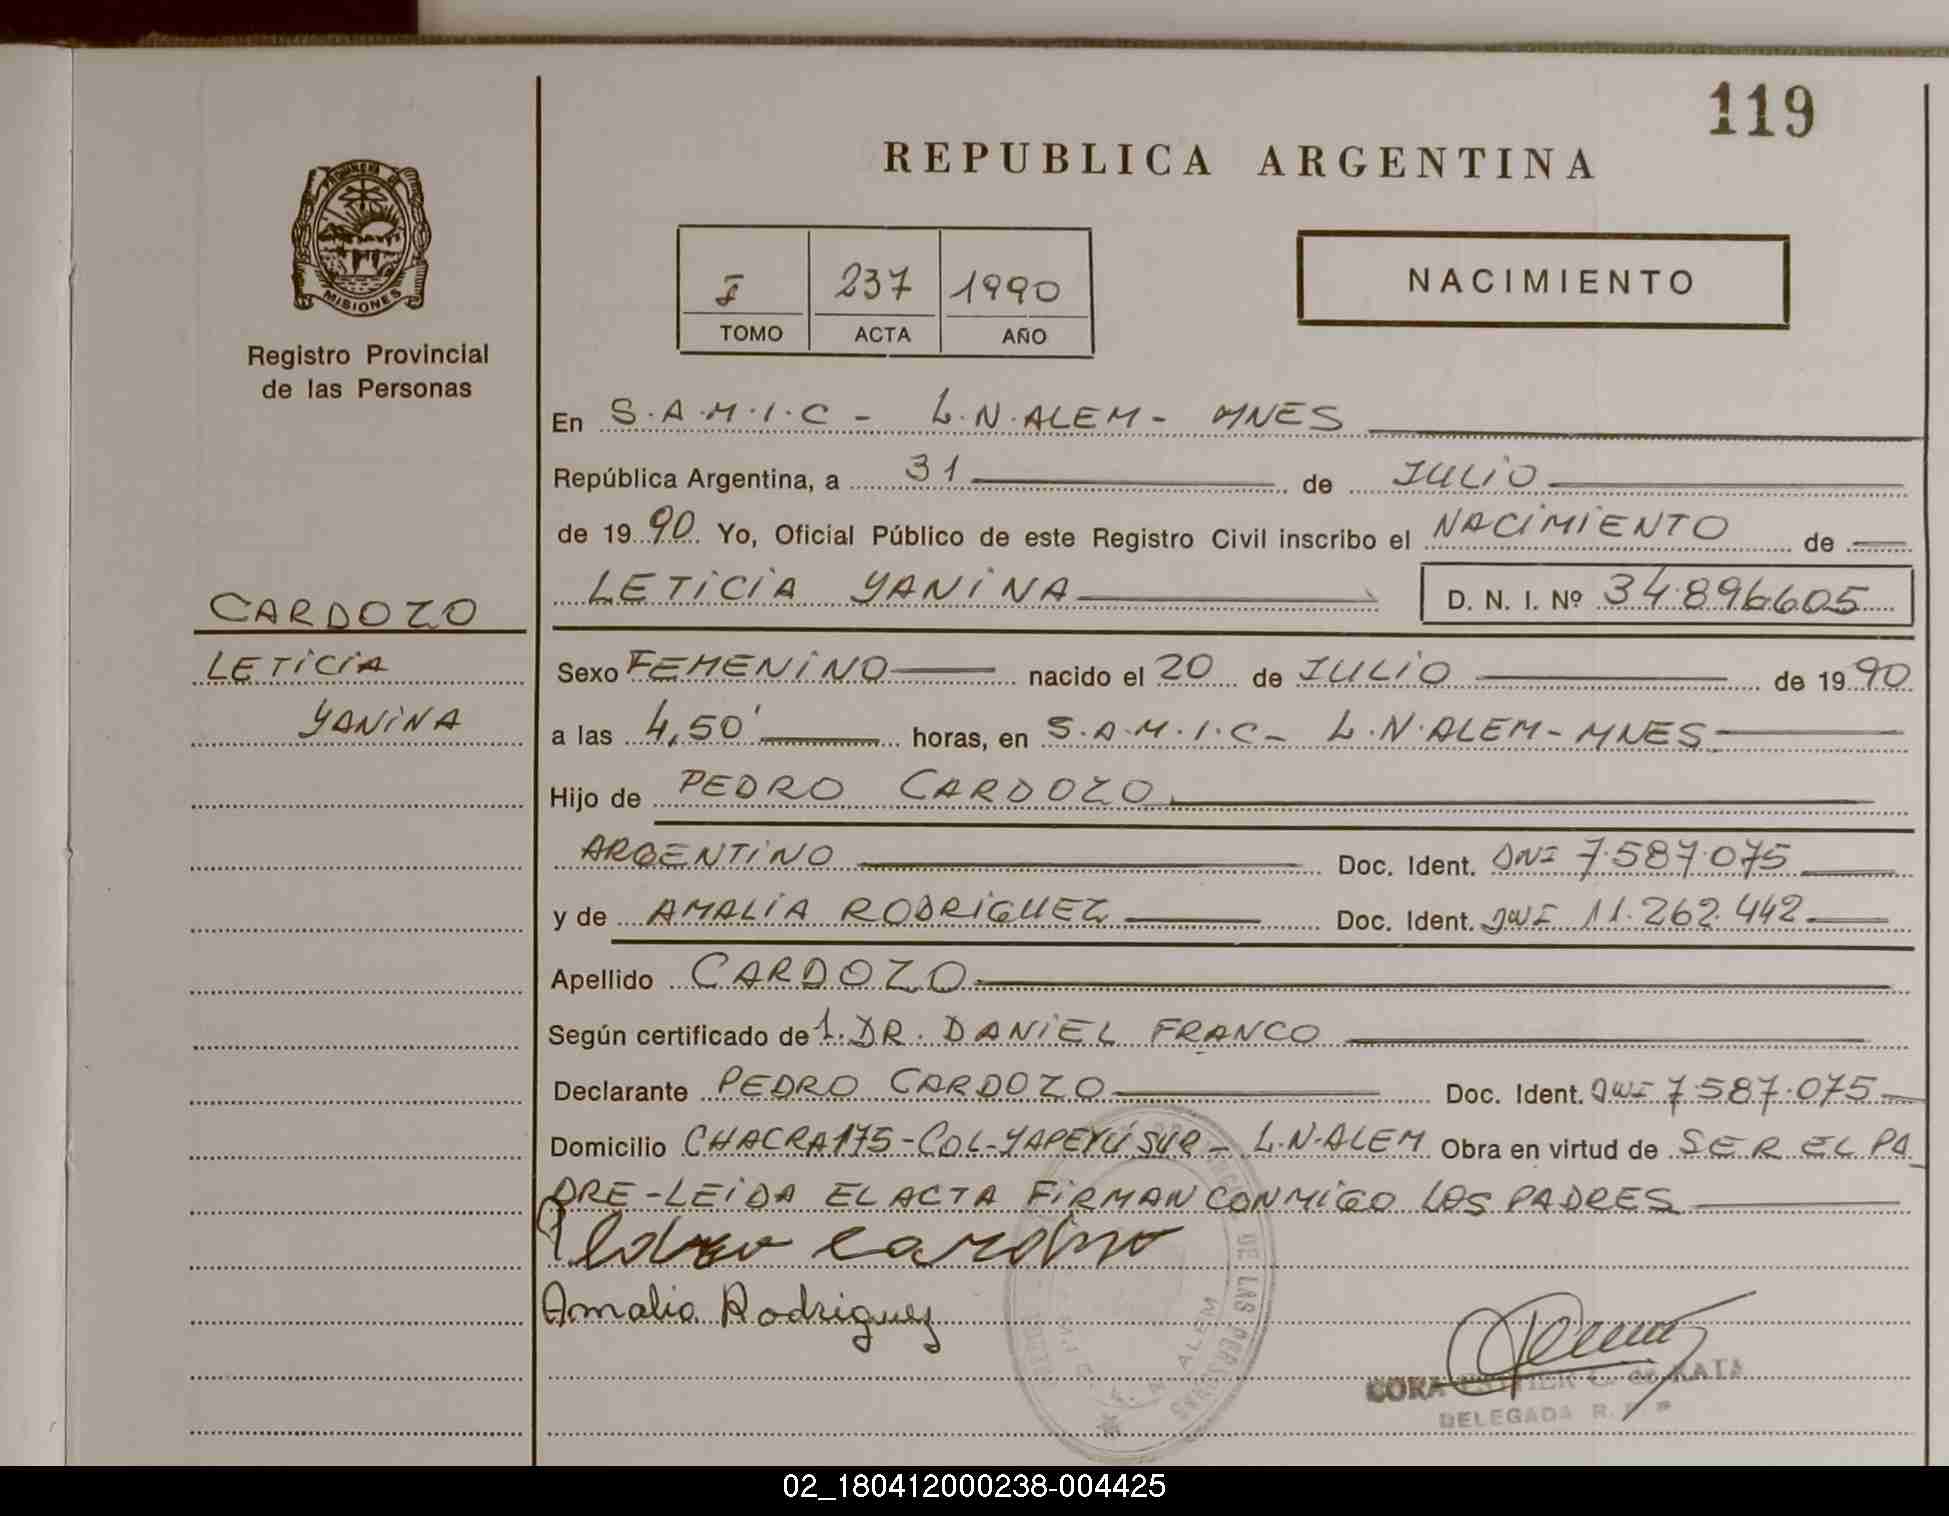 119
REPUBLICA ARGENTINA
PROVINCIA DE
MISIONES
Registro Provincial
de las Personas
I 237 1990
TOMO ACTA AÑO
NACIMIENTO
En S.A.M.I.C - L.N.ALEM - MNES
República Argentina, a 31 de JULIO
de 1990 Yo, Oficial Público de este Registro Civil inscribo el NACIMIENTO de
LETICIA YANINA D. N. I. Nº 34.896.605
CARDOZO
LETICIA
YANINA
Sexo FEMENINO nacido el 20 de JULIO de 1990
a las 4,50' horas, en S.A.M.I.C - L.N.ALEM - MNES
Hijo de PEDRO CARDOZO
ARGENTINO Doc. Ident. DNI 7.587.075
y de AMALIA RODRIGUEZ Doc. Ident. DNI 11.262.442
Apellido CARDOZO
Según certificado de 1. DR. DANIEL FRANCO
Declarante PEDRO CARDOZO Doc. Ident. DNI 7.587.075
Domicilio CHACRA 175 - COL - YAPEYÚ SUR - L.N.ALEM Obra en virtud de SER EL PA
DRE - LEIDA EL ACTA FIRMAN CONMIGO LOS PADRES
Pedro Cardozo
Amalia Rodriguez
DE LAS PERSONAS
ALEM
CORA ESTHER C. de KATA
DELEGADA R.
02_180412000238-004425